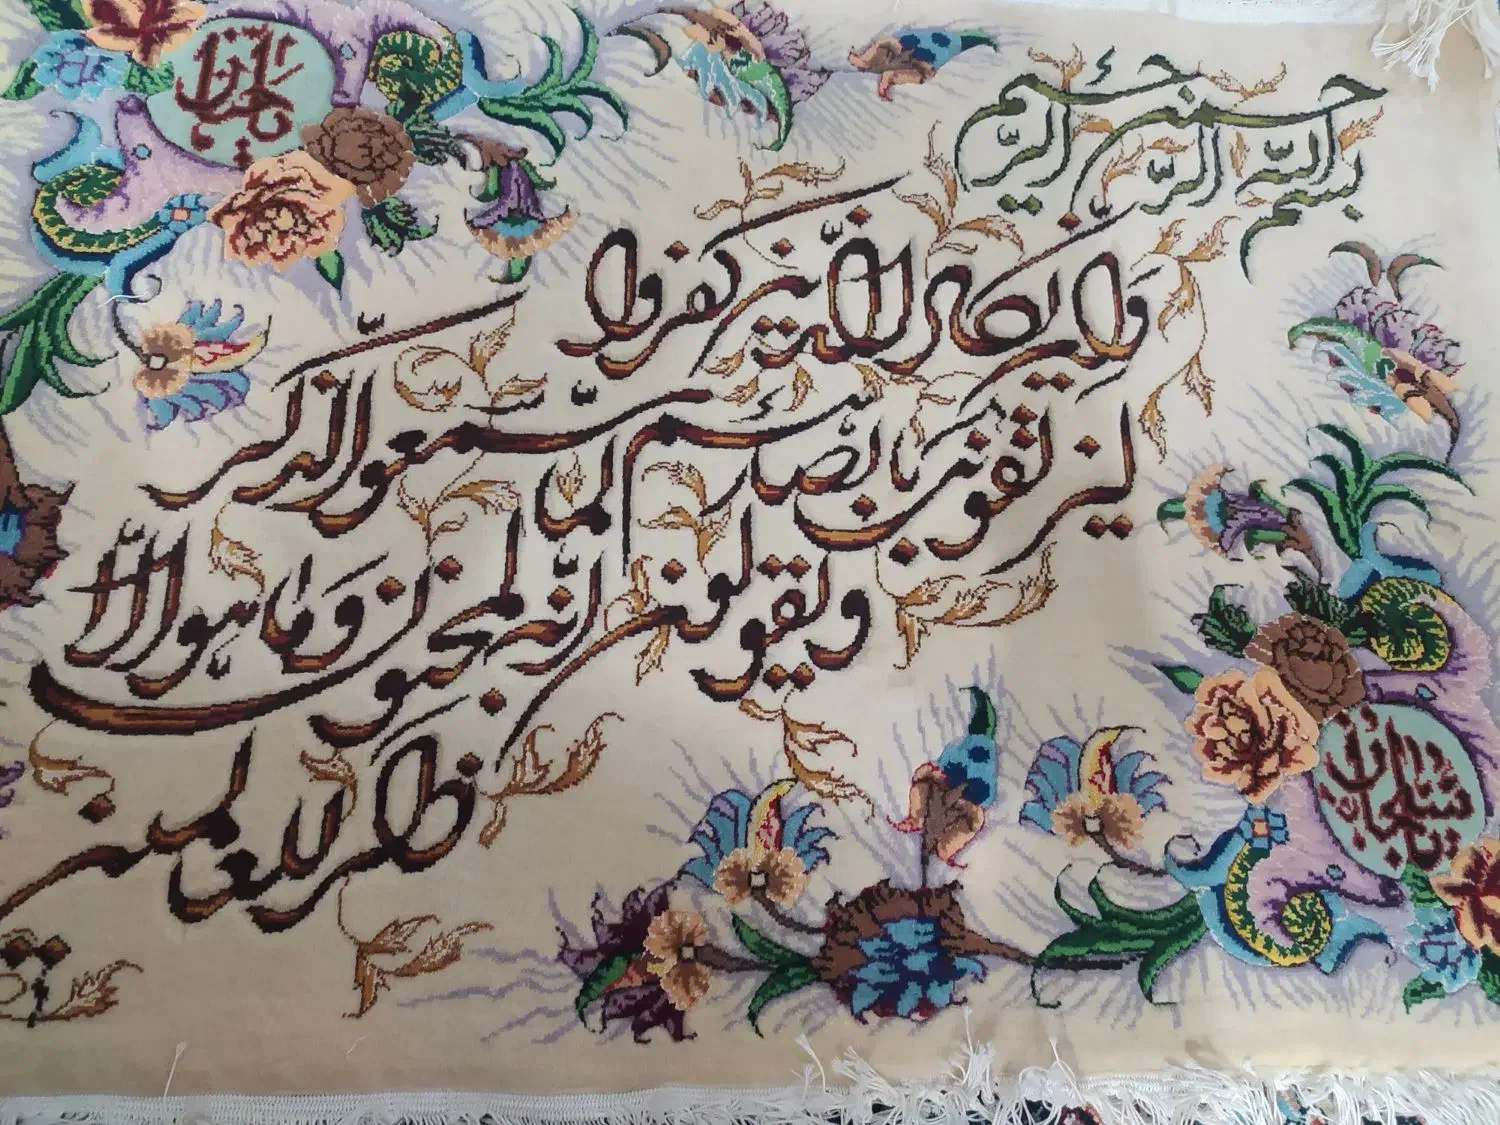 بسم الله الرحمن الرحیم
وان یکاد الذین کفروا
لیزلقونک بابصارهم لما سمعوا الذکر
و یقولون انه لمجنون وما هو الا
ذکر للعالمین